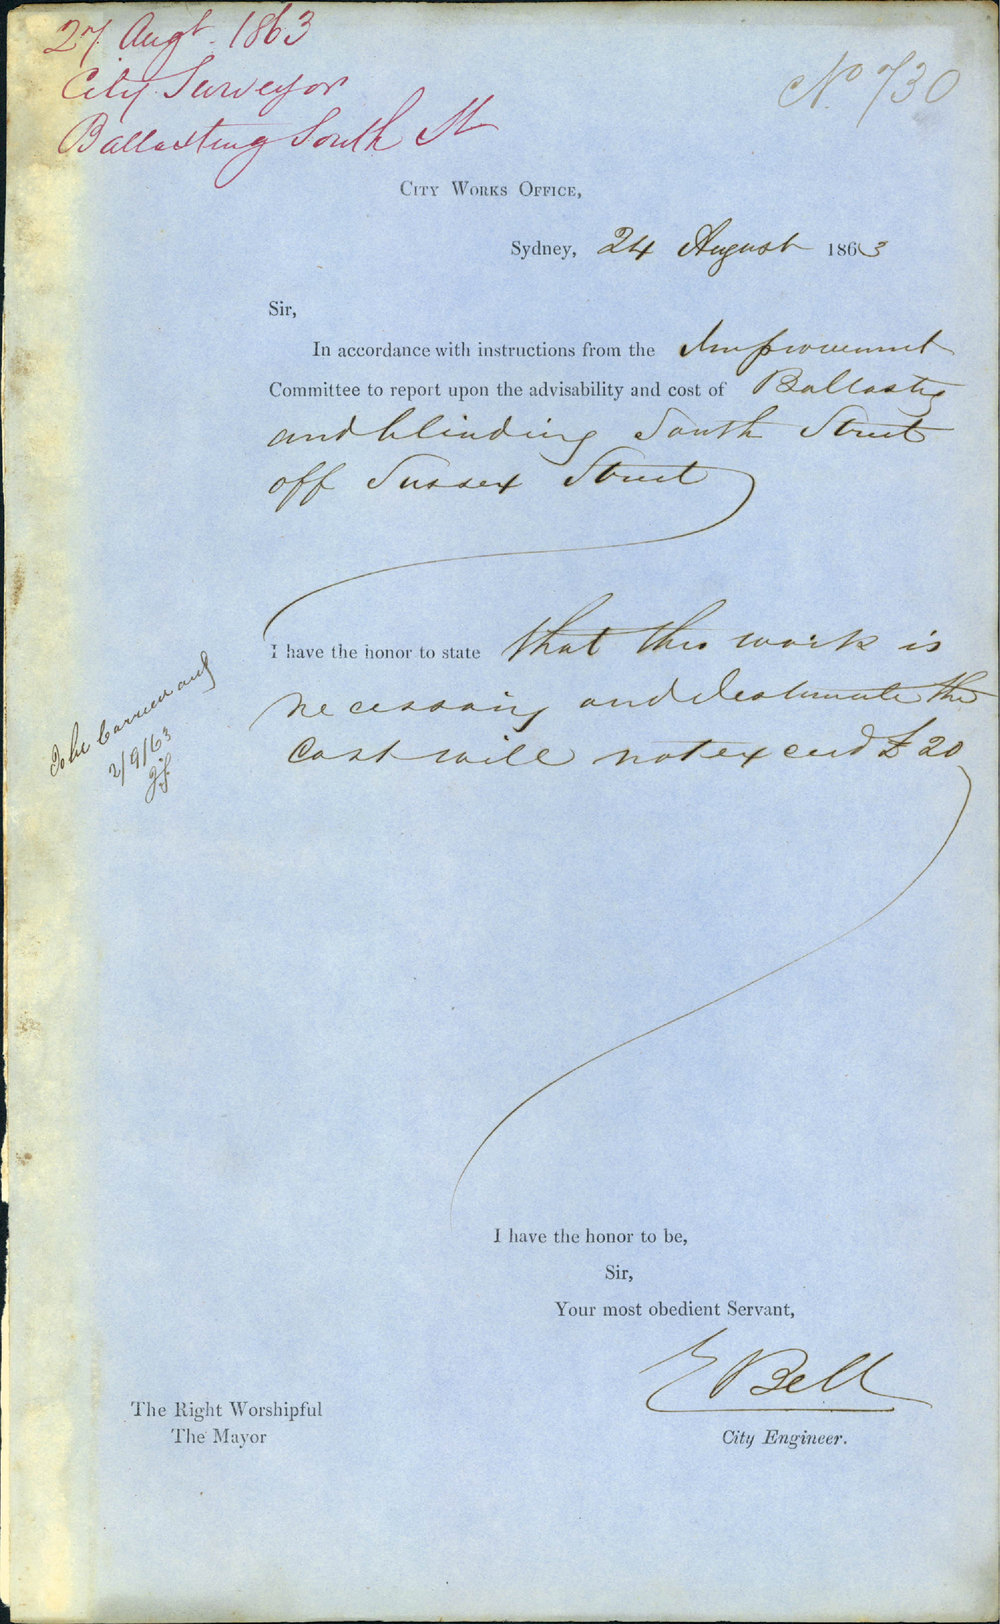 27 Augt. 1863
City Surveyor
Ballasting South St
No 730
City Works Office,
Sydney, 24 August 1863
Sir,
In accordance with instructions from the Improvement
Committee to report upon the advisability and cost of Ballastg
and blinding South Street
off Sussex Street
I have the honor to state that this work is
necessary and I estimate the
Cost will not exceed £20
To be Carried out
2/9/63
I have the honor to be,
Sir,
Your most obedient Servant,
E Bell
City Engineer.
The Right Worshipful
The Mayor